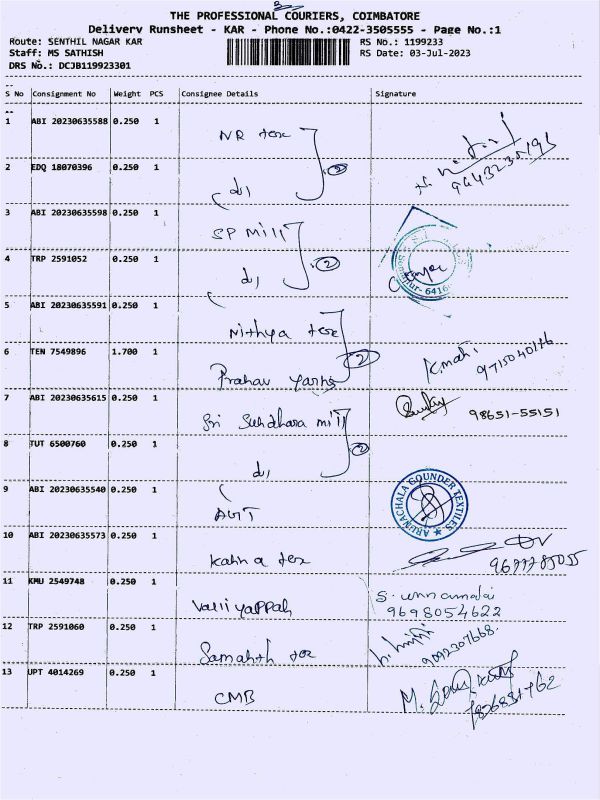 THE PROFESSIONAL COURIERS, COIMBATORE
Delivery Runsheet - KAR - Phone No.:0422-3505555 - Page No.:1
Route: SENTHIL NAGAR KAR
RS No.: 1199233
Staff: MS SATHISH
RS Date: 03-Jul-2023
DRS No.: DCJB119923301
S No Consignment No Weight PCS Consignee Details Signature
1 ABI 20230635588 0.250 1 NR tex
2 EDQ 18070396 0.250 1 do 2
9443235193
3 ABI 20230635598 0.250 1 SP Mill
4 TRP 2591052 0.250 1 do 2
5 ABI 20230635591 0.250 1 Nithya tex
6 TEN 7549896 1.700 1 Pranav yarns 2 K.mani 9715040116
7 ABI 20230635615 0.250 1 Sri Sundhara mill 98651-55151
8 TUT 6500760 0.250 1 do 2
9 ABI 20230635540 0.250 1 AGT
ARUNACHALA GOUNDER TEXTILES
10 ABI 20230635573 0.250 1 Kanna tex
11 KMU 2549748 0.250 1 Valliyappah S. unnamalai
9698054622
12 TRP 2591060 0.250 1 Samahth tex 9092307668
13 UPT 4014269 0.250 1 CMB